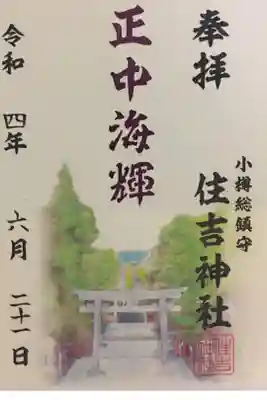 奉拝
小樽総鎮守
住吉神社
正中海輝
令和四年六月二十一日